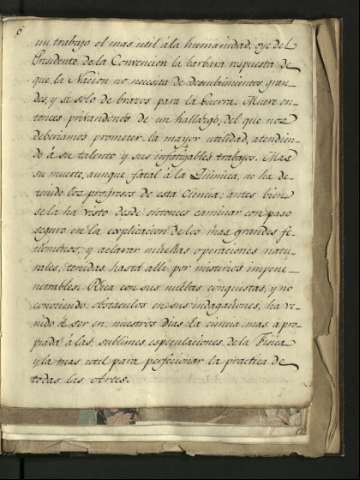 6
un trabajo el mas util á la humanidad, oye del
Presidente de la Convencion la barbara respuesta de
que la Nacion no necesita de descubrimientos gran-
des, y si solo de brazos para la Guerra. Muere en-
tonces privandonos de un hallazgo, del que nos
deberiamos prometer la mayor utilidad, atendien-
do á su talento y sus infatigables trabajos. Mas
su muerte, aunque fatal á la Quimica, no ha de-
tenido los progresos de esta Ciencia; antes bien
se la ha visto desde entonces caminar con paso
seguro en la explicacion de los mas grandes fe-
nomenos, y aclarar muchas operaciones natu-
rales, tenidas hasta allí por misterios impene-
trables. Rica con sus nuevas conquistas, y no
conociendo obstáculos en sus indagaciones, ha ve-
nido á ser en nuestros dias la ciencia mas apro-
piada á las sublimes especulaciones de la Fisica
y la mas util para perfeccionar la practica de
todas las otras.